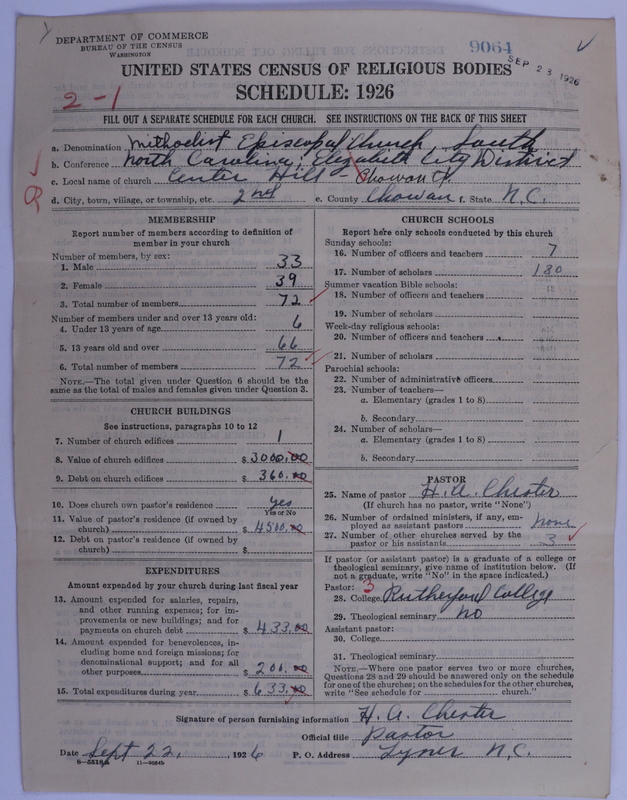 DEPARTMENT OF COMMERCE
BUREAU OF THE CENSUS
WASHINGTON
9064
SEP 23 1926
UNITED STATES CENSUS OF RELIGIOUS BODIES
SCHEDULE: 1926
2-1
FILL OUT A SEPARATE SCHEDULE FOR EACH CHURCH. SEE INSTRUCTIONS ON THE BACK OF THIS SHEET
a. Denomination Methodist Episcopal Church, South
b. Conference North Carolina; Elizabeth City District
c. Local name of church Center Hill Chowan Ct.
d. City, town, village, or township, etc. 2nd e. County Chowan f. State N.C.
MEMBERSHIP
Report number of members according to definition of
member in your church
Number of members, by sex:
1. Male 33
2. Female 39
3. Total number of members 72
Number of members under and over 13 years old:
4. Under 13 years of age 6
5. 13 years old and over 66
6. Total number of members 72
NOTE.—The total given under Question 6 should be
same as the total of males and females given under Question 3.
CHURCH BUILDINGS
See instructions, paragraphs 10 to 12
7. Number of church edifices 1
8. Value of church edifices $ 3000.00
9. Debt on church edifices $ 360.00
10. Does church own pastor's residence yes
Yes or No
11. Value of pastor's residence (if owned by
church) $ 4500.00
12. Debt on pastor's residence (if owned by
church) $
EXPENDITURES
Amount expended by your church during last fiscal year
13. Amount expended for salaries, repairs,
and other running expenses; for im-
provements or new buildings; and for
payments on church debt $ 433.00
14. Amount expended for benevolences, in-
cluding home and foreign missions; for
denominational support; and for all
other purposes $ 200.00
15. Total expenditures during year $ 633.00
CHURCH SCHOOLS
Report here only schools conducted by this church
Sunday schools:
16. Number of officers and teachers 7
17. Number of scholars 180
Summer vacation Bible schools:
18. Number of officers and teachers
19. Number of scholars
Week-day religious schools:
20. Number of officers and teachers
21. Number of scholars
Parochial schools:
22. Number of administrative officers
23. Number of teachers—
a. Elementary (grades 1 to 8)
b. Secondary
24. Number of scholars—
a. Elementary (grades 1 to 8)
b. Secondary
PASTOR
25. Name of pastor H. A. Chester
(If church has no pastor, write "None")
26. Number of ordained ministers, if any, em-
ployed as assistant pastors none
27. Number of other churches served by the
pastor or his assistants 3
If pastor (or assistant pastor) is a graduate of a college or
theological seminary, give name of institution below. (If
not a graduate, write "No" in the space indicated.)
Pastor: 3
28. College Rutherford College
29. Theological seminary No
Assistant pastor:
30. College
31. Theological seminary
NOTE.—Where one pastor serves two or more churches,
Questions 28 and 29 should be answered only on the schedule
for one of the churches; on the schedules for the other churches,
write "See schedule for church."
Signature of person furnishing information H. A. Chester
Official title Pastor
Date Sept 22, 1926 P. O. Address Tyner N.C.
8—5518a 11—9064b